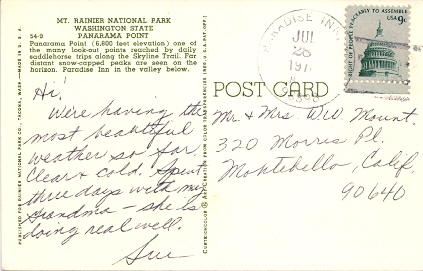 MT. RAINIER NATIONAL PARK
WASHINGTON STATE
54-D PANORAMA POINT
Panorama Point (6,800 feet elevation) one of
the many look-out points reached by daily
saddlehorse trips along the Skyline Trail. Far
distant snow-capped peaks are seen on the
horizon. Paradise Inn in the valley below.
Hi,
We're having the
most beautiful
weather so far.
Clear & cold. Spent
three days with my
Grandma – she is
doing real well.
Sue
PUBLISHED FOR RAINIER NATIONAL PARK CO., TACOMA, WASH. — MADE IN U.S.A.
POST CARD
PARADISE INN
JUL
26
RIGHT OF PEOPLE PEACEABLY TO ASSEMBLE
USA 9c
Mr. & Mrs Will Mount.
320 Morris Pl.
Montebello, Calif.
90640